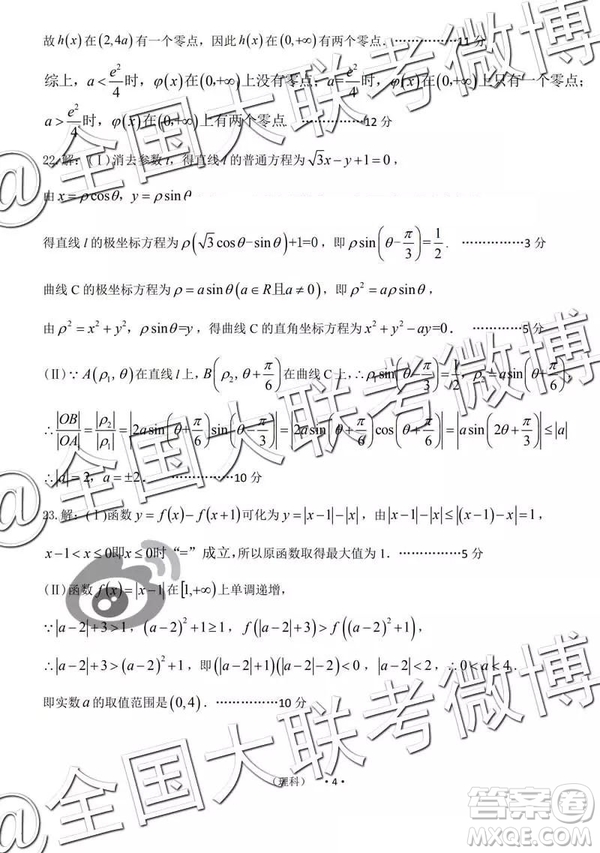 故h(x)在(2,4a)有一个零点，因此h(x)在(0,+∞)有两个零点．……………11分
综上，a<e²/4时，φ(x)在(0,+∞)上没有零点；a=e²/4时，φ(x)在(0,+∞)上只有一个零点；
a>e²/4时，φ(x)在(0,+∞)上有两个零点．……………12分
22.解：(Ⅰ)消去参数t，得直线l的普通方程为√3x−y+1=0，
由x=ρcosθ，y=ρsinθ
得直线l的极坐标方程为ρ(√3cosθ−sinθ)+1=0，即ρsin(θ−π/3)=1/2．……………3分
曲线C的极坐标方程为ρ=asinθ(a∈R且a≠0)，即ρ²=aρsinθ，
由ρ²=x²+y²，ρsinθ=y，得曲线C的直角坐标方程为x²+y²−ay=0．…………5分
(Ⅱ)∵A(ρ₁,θ)在直线l上，B(ρ₂,θ+π/6)在曲线C上，∴ρ₁sin(θ−π/3)=1/2，ρ₂=asin(θ+π/6)
∴|OB|/|OA|=|ρ₂|/|ρ₁|=|2asin(θ+π/6)sin(θ−π/3)|=|2asin(θ+π/6)cos(θ+π/6)|=|asin(2θ+π/3)|≤|a|
∴|a|=2，a=±2．……………10分
23.解：(Ⅰ)函数y=f(x)−f(x+1)可化为y=|x−1|−|x|，由|x−1|−|x|≤|(x−1)−x|=1，
x−1<x≤0即x≤0时“=”成立，所以原函数取得最大值为1．……………5分
(Ⅱ)函数f(x)=|x−1|在[1,+∞)上单调递增，
∵|a−2|+3>1，(a−2)²+1≥1，f(|a−2|+3)>f((a−2)²+1)
∴|a−2|+3>(a−2)²+1，即(|a−2|+1)(|a−2|−2)<0，|a−2|<2，∴0<a<4．
即实数a的取值范围是(0,4)．……………10分
(理科) • 4 •
@全国大联考微博
@全国大联考微博
@全国大联考微博
答案圈
MXQE.COM